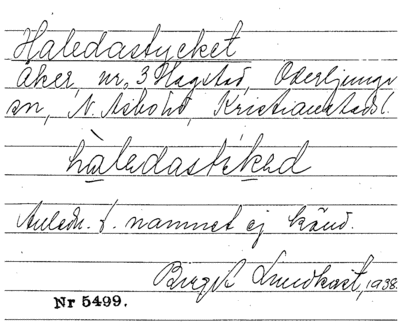 Haledastycket
åker, nr. 3 Hagstad, Oderljunga
sn, N. Åsbohd, Kristianstads l.
hàledastiked
Anledn. t. namnet ej känd.
Birgit Lundkast, 1938.
Nr 5499.